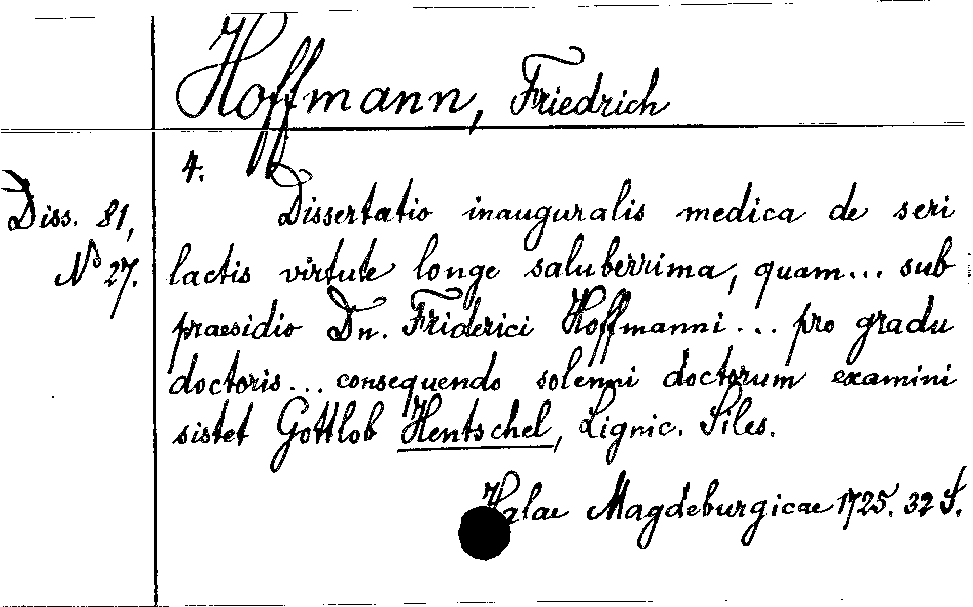 Hoffmann, Friedrich
4.
Diss. 81,
No 27.
Dissertatio inauguralis medica de seri
lactis virtute longe saluberrima, quam... sub
praesidio Dn. Friderici Hoffmanni... pro gradu
doctoris... consequendo solenni doctorum examini
sistet Gottlob Hentschel, Lignic. Siles.
Halae Magdeburgicae 1725. 32 S.